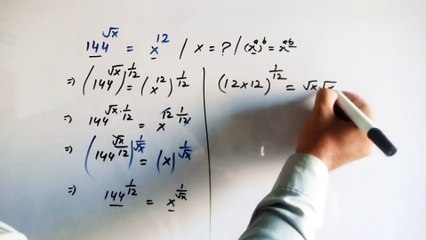 144^√x = x^12 / x = ? / (x^a)^b = x^ab
⇒ (144^√x)^1/12 = (x^12)^1/12
⇒ 144^√x·1/12 = x^12·1/12
⇒ (144^√x/12)^1/√x = (x)^1/√x
⇒ 144^1/12 = x^1/√x
(12×12)^1/12 = √x√x